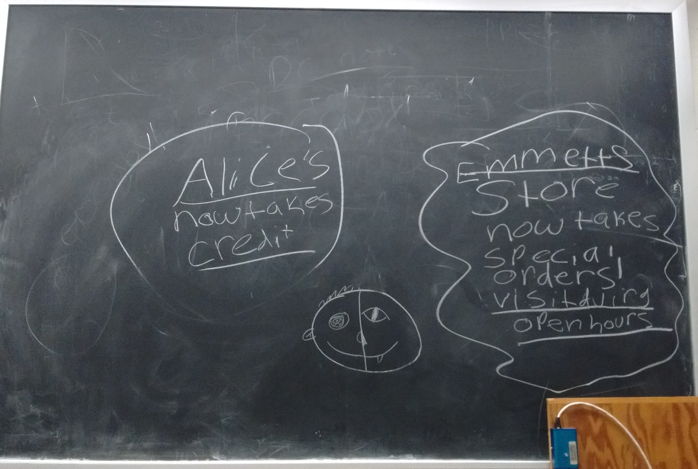 Alice's
now takes
credit
Emmetts
Store
now takes
special
orders!
visit during
open hours